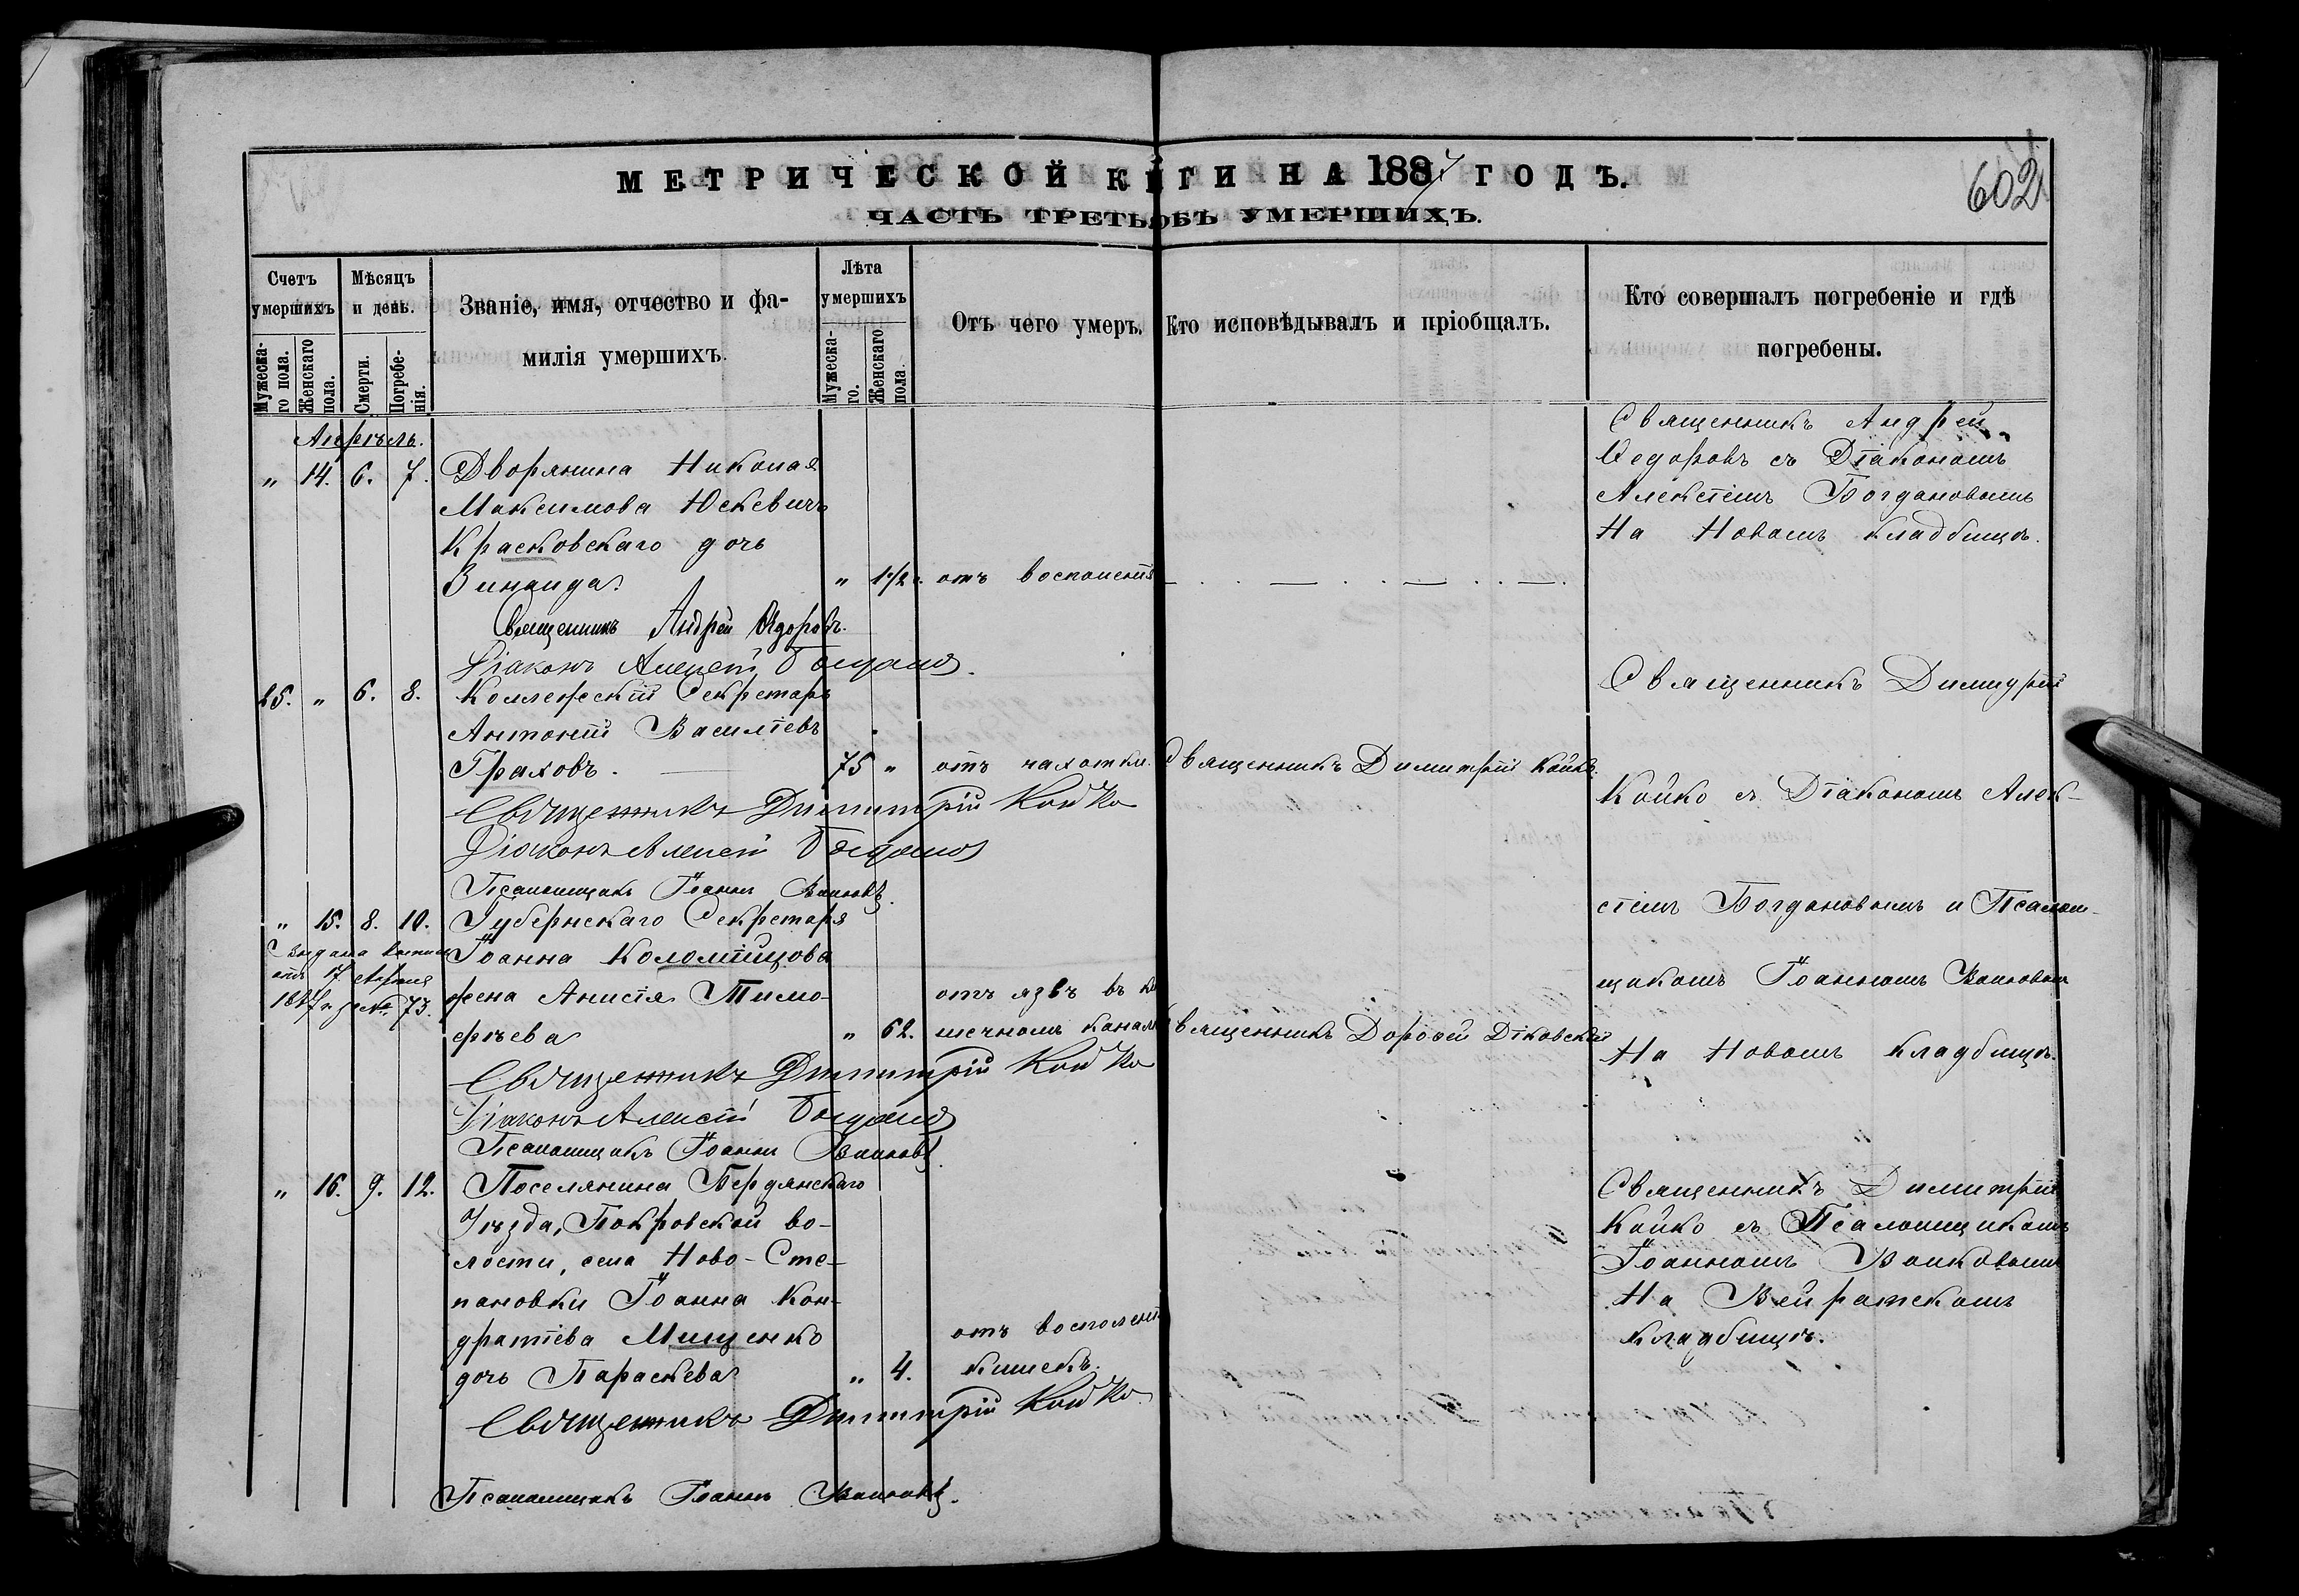 МЕТРИЧЕСКОЙ К ГИ НА 1887 ГОДЪ.
602
ЧАСТЬ ТРЕТЬ ОБЪ УМЕРШИХЪ.
Счетъ умершихъ
Мѣсяцъ и день.
Званіе, имя, отчество и фамилія умершихъ.
Лѣта умершихъ
Отъ чего умеръ.
Кто исповѣдывалъ и пріобщалъ.
Кто совершалъ погребеніе и гдѣ погребены.
Мужескаго пола.
Женскаго пола.
Смерти.
Погребенія.
Мужескаго.
Женскаго пола.
Апрѣль.
„ 14. 6. 7. Дворянина Николая
Максимова Юскевичъ
Красковскаго дочь
Зинаида. „ 1 1/2. отъ воспаленія
Священникъ Андрей Ѳедоровъ.
Діаконъ Алексѣй Богдановъ.
Священникъ Андрей
Ѳедоровъ съ Діакономъ
Алексѣемъ Богдановымъ
На Новомъ кладбищѣ.
25. „ 6. 8. Коллежскій Секретарь
Антоній Василіевъ
Граховъ. 75 „ отъ чахотки. Священникъ Димитрій Койко.
Священникъ Димитрій Койко
Діаконъ Алексѣй Богдановъ
Псаломщикъ Іоаннъ Волковъ.
Священникъ Димитрій
Койко съ Діакономъ Алек-
сѣемъ Богдановымъ и Псалом-
щикомъ Іоанномъ Волковымъ
На Новомъ кладбищѣ.
„ 15. 8. 10. Губернскаго Секретаря
Іоанна Коломійцова
жена Анисія Тимо-
фѣева „ 62. отъ язвъ въ ки-
шечномъ каналѣ Священникъ Дороѳей Діковскій
Выдана выпись
отъ 17 Апрѣля
1887 г. за № 73.
Священникъ Димитрій Койко
Діаконъ Алексѣй Богдановъ
Псаломщикъ Іоаннъ Волковъ.
„ 16. 9. 12. Поселянина Бердянскаго
Уѣзда, Покровской во-
лости, села Ново-Сте-
пановки Іоанна Кон-
дратіева Мищенко
дочь Параскева „ 4. отъ воспаленія
кишекъ.
Священникъ Димитрій Койко.
Псаломщикъ Іоаннъ Волковъ.
Священникъ Димитрій
Койко съ Псаломщикомъ
Іоанномъ Волковымъ
На
кладбищѣ.